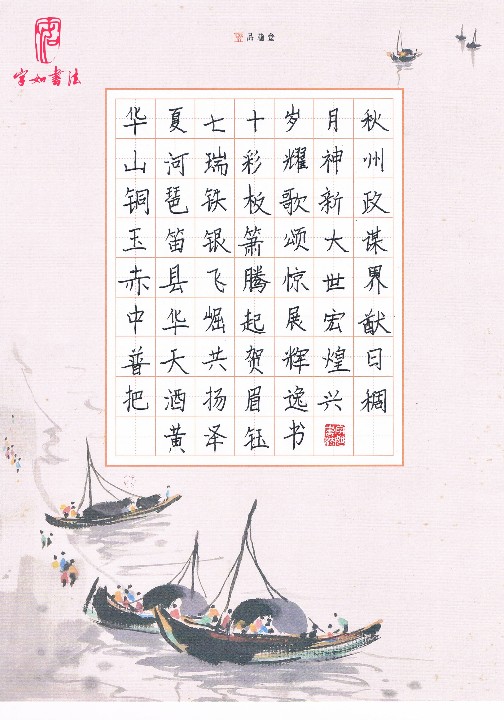 字如书法
华夏七十岁月秋
山河瑞彩耀神州
铜琶铁板歌新政
玉笛银箫颂大谋
赤县飞腾惊世界
中华崛起展宏猷
普天共贺辉煌日
把酒扬眉逸兴稠
黄泽钰书